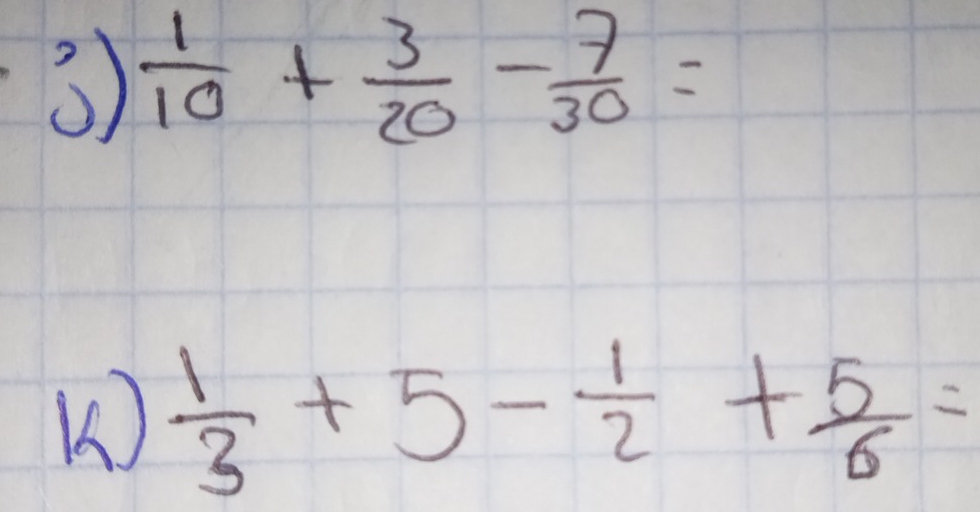 j) 1/10 + 3/20 - 7/30 =
k) 1/3 + 5 - 1/2 + 5/6 =